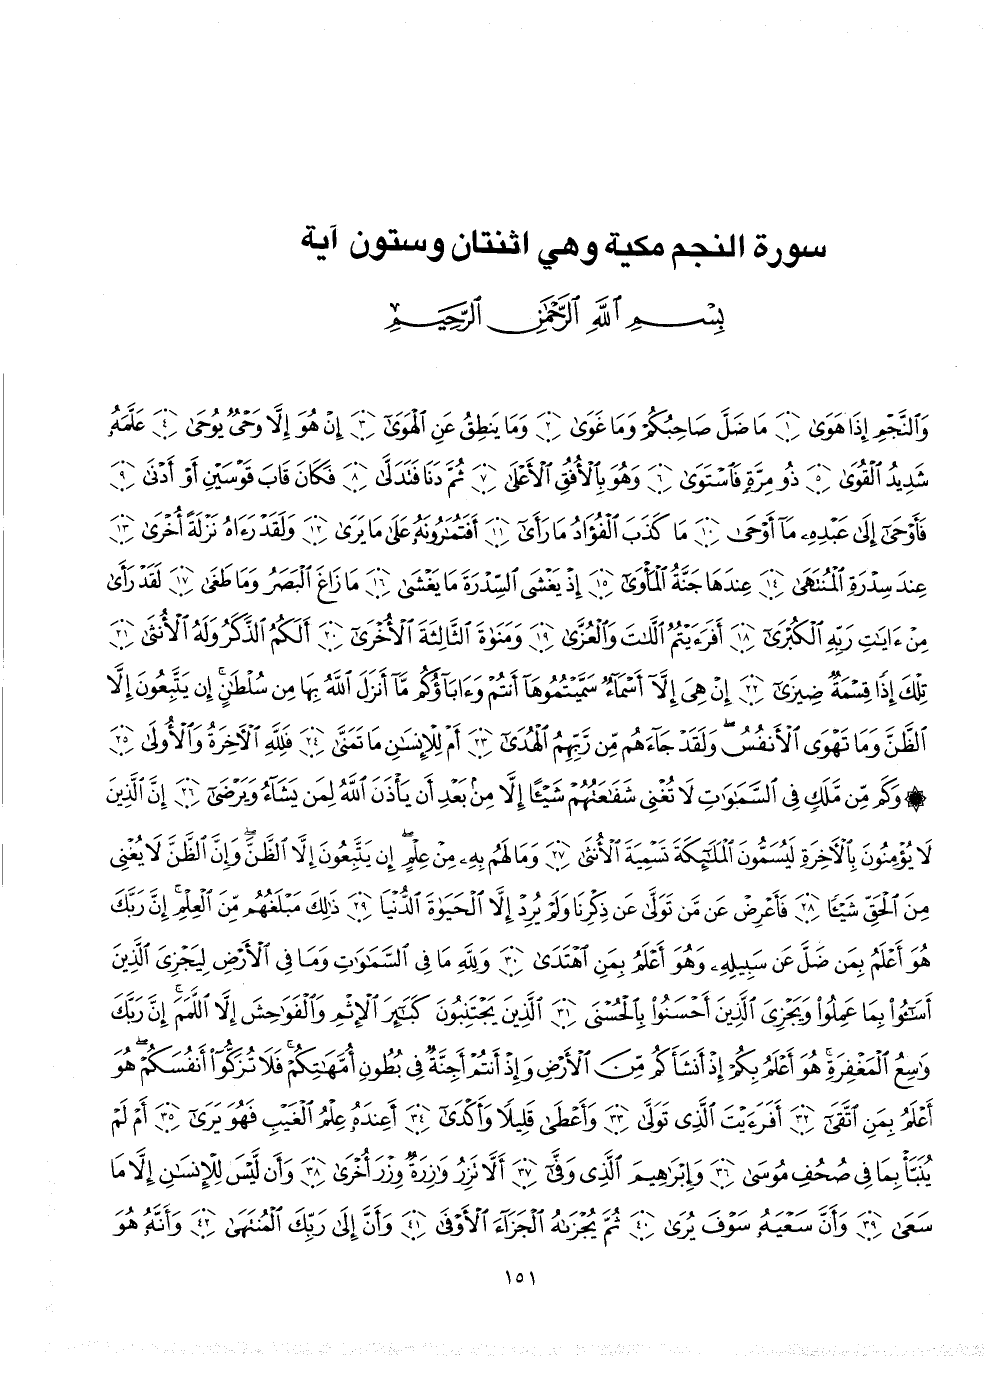 سورة النجم مكية وهي اثنتان وستون آية
بِسْمِ ٱللَّهِ ٱلرَّحْمَٰنِ ٱلرَّحِيمِ
وَٱلنَّجْمِ إِذَا هَوَىٰ ۝١ مَا ضَلَّ صَاحِبُكُمْ وَمَا غَوَىٰ ۝٢ وَمَا يَنطِقُ عَنِ ٱلْهَوَىٰٓ ۝٣ إِنْ هُوَ إِلَّا وَحْىٌ يُوحَىٰ ۝٤ عَلَّمَهُۥ
شَدِيدُ ٱلْقُوَىٰ ۝٥ ذُو مِرَّةٍ فَٱسْتَوَىٰ ۝٦ وَهُوَ بِٱلْأُفُقِ ٱلْأَعْلَىٰ ۝٧ ثُمَّ دَنَا فَتَدَلَّىٰ ۝٨ فَكَانَ قَابَ قَوْسَيْنِ أَوْ أَدْنَىٰ ۝٩
فَأَوْحَىٰٓ إِلَىٰ عَبْدِهِۦ مَآ أَوْحَىٰ ۝١٠ مَا كَذَبَ ٱلْفُؤَادُ مَا رَأَىٰٓ ۝١١ أَفَتُمَٰرُونَهُۥ عَلَىٰ مَا يَرَىٰ ۝١٢ وَلَقَدْ رَءَاهُ نَزْلَةً أُخْرَىٰ ۝١٣
عِندَ سِدْرَةِ ٱلْمُنتَهَىٰ ۝١٤ عِندَهَا جَنَّةُ ٱلْمَأْوَىٰٓ ۝١٥ إِذْ يَغْشَى ٱلسِّدْرَةَ مَا يَغْشَىٰ ۝١٦ مَا زَاغَ ٱلْبَصَرُ وَمَا طَغَىٰ ۝١٧ لَقَدْ رَأَىٰ
مِنْ ءَايَٰتِ رَبِّهِ ٱلْكُبْرَىٰٓ ۝١٨ أَفَرَءَيْتُمُ ٱللَّٰتَ وَٱلْعُزَّىٰ ۝١٩ وَمَنَوٰةَ ٱلثَّالِثَةَ ٱلْأُخْرَىٰٓ ۝٢٠ أَلَكُمُ ٱلذَّكَرُ وَلَهُ ٱلْأُنثَىٰ ۝٢١
تِلْكَ إِذًا قِسْمَةٌ ضِيزَىٰٓ ۝٢٢ إِنْ هِىَ إِلَّآ أَسْمَآءٌ سَمَّيْتُمُوهَآ أَنتُمْ وَءَابَآؤُكُم مَّآ أَنزَلَ ٱللَّهُ بِهَا مِن سُلْطَٰنٍ ۚ إِن يَتَّبِعُونَ إِلَّا
ٱلظَّنَّ وَمَا تَهْوَى ٱلْأَنفُسُ ۖ وَلَقَدْ جَآءَهُم مِّن رَّبِّهِمُ ٱلْهُدَىٰٓ ۝٢٣ أَمْ لِلْإِنسَٰنِ مَا تَمَنَّىٰ ۝٢٤ فَلِلَّهِ ٱلْءَاخِرَةُ وَٱلْأُولَىٰ ۝٢٥
۞ وَكَم مِّن مَّلَكٍ فِى ٱلسَّمَٰوَٰتِ لَا تُغْنِى شَفَٰعَتُهُمْ شَيْـًٔا إِلَّا مِنۢ بَعْدِ أَن يَأْذَنَ ٱللَّهُ لِمَن يَشَآءُ وَيَرْضَىٰٓ ۝٢٦ إِنَّ ٱلَّذِينَ
لَا يُؤْمِنُونَ بِٱلْءَاخِرَةِ لَيُسَمُّونَ ٱلْمَلَٰٓئِكَةَ تَسْمِيَةَ ٱلْأُنثَىٰ ۝٢٧ وَمَا لَهُم بِهِۦ مِنْ عِلْمٍ ۖ إِن يَتَّبِعُونَ إِلَّا ٱلظَّنَّ ۖ وَإِنَّ ٱلظَّنَّ لَا يُغْنِى
مِنَ ٱلْحَقِّ شَيْـًٔا ۝٢٨ فَأَعْرِضْ عَن مَّن تَوَلَّىٰ عَن ذِكْرِنَا وَلَمْ يُرِدْ إِلَّا ٱلْحَيَوٰةَ ٱلدُّنْيَا ۝٢٩ ذَٰلِكَ مَبْلَغُهُم مِّنَ ٱلْعِلْمِ ۚ إِنَّ رَبَّكَ
هُوَ أَعْلَمُ بِمَن ضَلَّ عَن سَبِيلِهِۦ وَهُوَ أَعْلَمُ بِمَنِ ٱهْتَدَىٰ ۝٣٠ وَلِلَّهِ مَا فِى ٱلسَّمَٰوَٰتِ وَمَا فِى ٱلْأَرْضِ لِيَجْزِىَ ٱلَّذِينَ
أَسَٰٓـُٔوا۟ بِمَا عَمِلُوا۟ وَيَجْزِىَ ٱلَّذِينَ أَحْسَنُوا۟ بِٱلْحُسْنَى ۝٣١ ٱلَّذِينَ يَجْتَنِبُونَ كَبَٰٓئِرَ ٱلْإِثْمِ وَٱلْفَوَٰحِشَ إِلَّا ٱللَّمَمَ ۚ إِنَّ رَبَّكَ
وَٰسِعُ ٱلْمَغْفِرَةِ ۚ هُوَ أَعْلَمُ بِكُمْ إِذْ أَنشَأَكُم مِّنَ ٱلْأَرْضِ وَإِذْ أَنتُمْ أَجِنَّةٌ فِى بُطُونِ أُمَّهَٰتِكُمْ ۖ فَلَا تُزَكُّوٓا۟ أَنفُسَكُمْ ۖ هُوَ
أَعْلَمُ بِمَنِ ٱتَّقَىٰٓ ۝٣٢ أَفَرَءَيْتَ ٱلَّذِى تَوَلَّىٰ ۝٣٣ وَأَعْطَىٰ قَلِيلًا وَأَكْدَىٰٓ ۝٣٤ أَعِندَهُۥ عِلْمُ ٱلْغَيْبِ فَهُوَ يَرَىٰٓ ۝٣٥ أَمْ لَمْ
يُنَبَّأْ بِمَا فِى صُحُفِ مُوسَىٰ ۝٣٦ وَإِبْرَٰهِيمَ ٱلَّذِى وَفَّىٰٓ ۝٣٧ أَلَّا تَزِرُ وَازِرَةٌ وِزْرَ أُخْرَىٰ ۝٣٨ وَأَن لَّيْسَ لِلْإِنسَٰنِ إِلَّا مَا
سَعَىٰ ۝٣٩ وَأَنَّ سَعْيَهُۥ سَوْفَ يُرَىٰ ۝٤٠ ثُمَّ يُجْزَىٰهُ ٱلْجَزَآءَ ٱلْأَوْفَىٰ ۝٤١ وَأَنَّ إِلَىٰ رَبِّكَ ٱلْمُنتَهَىٰ ۝٤٢ وَأَنَّهُۥ هُوَ
١٥١